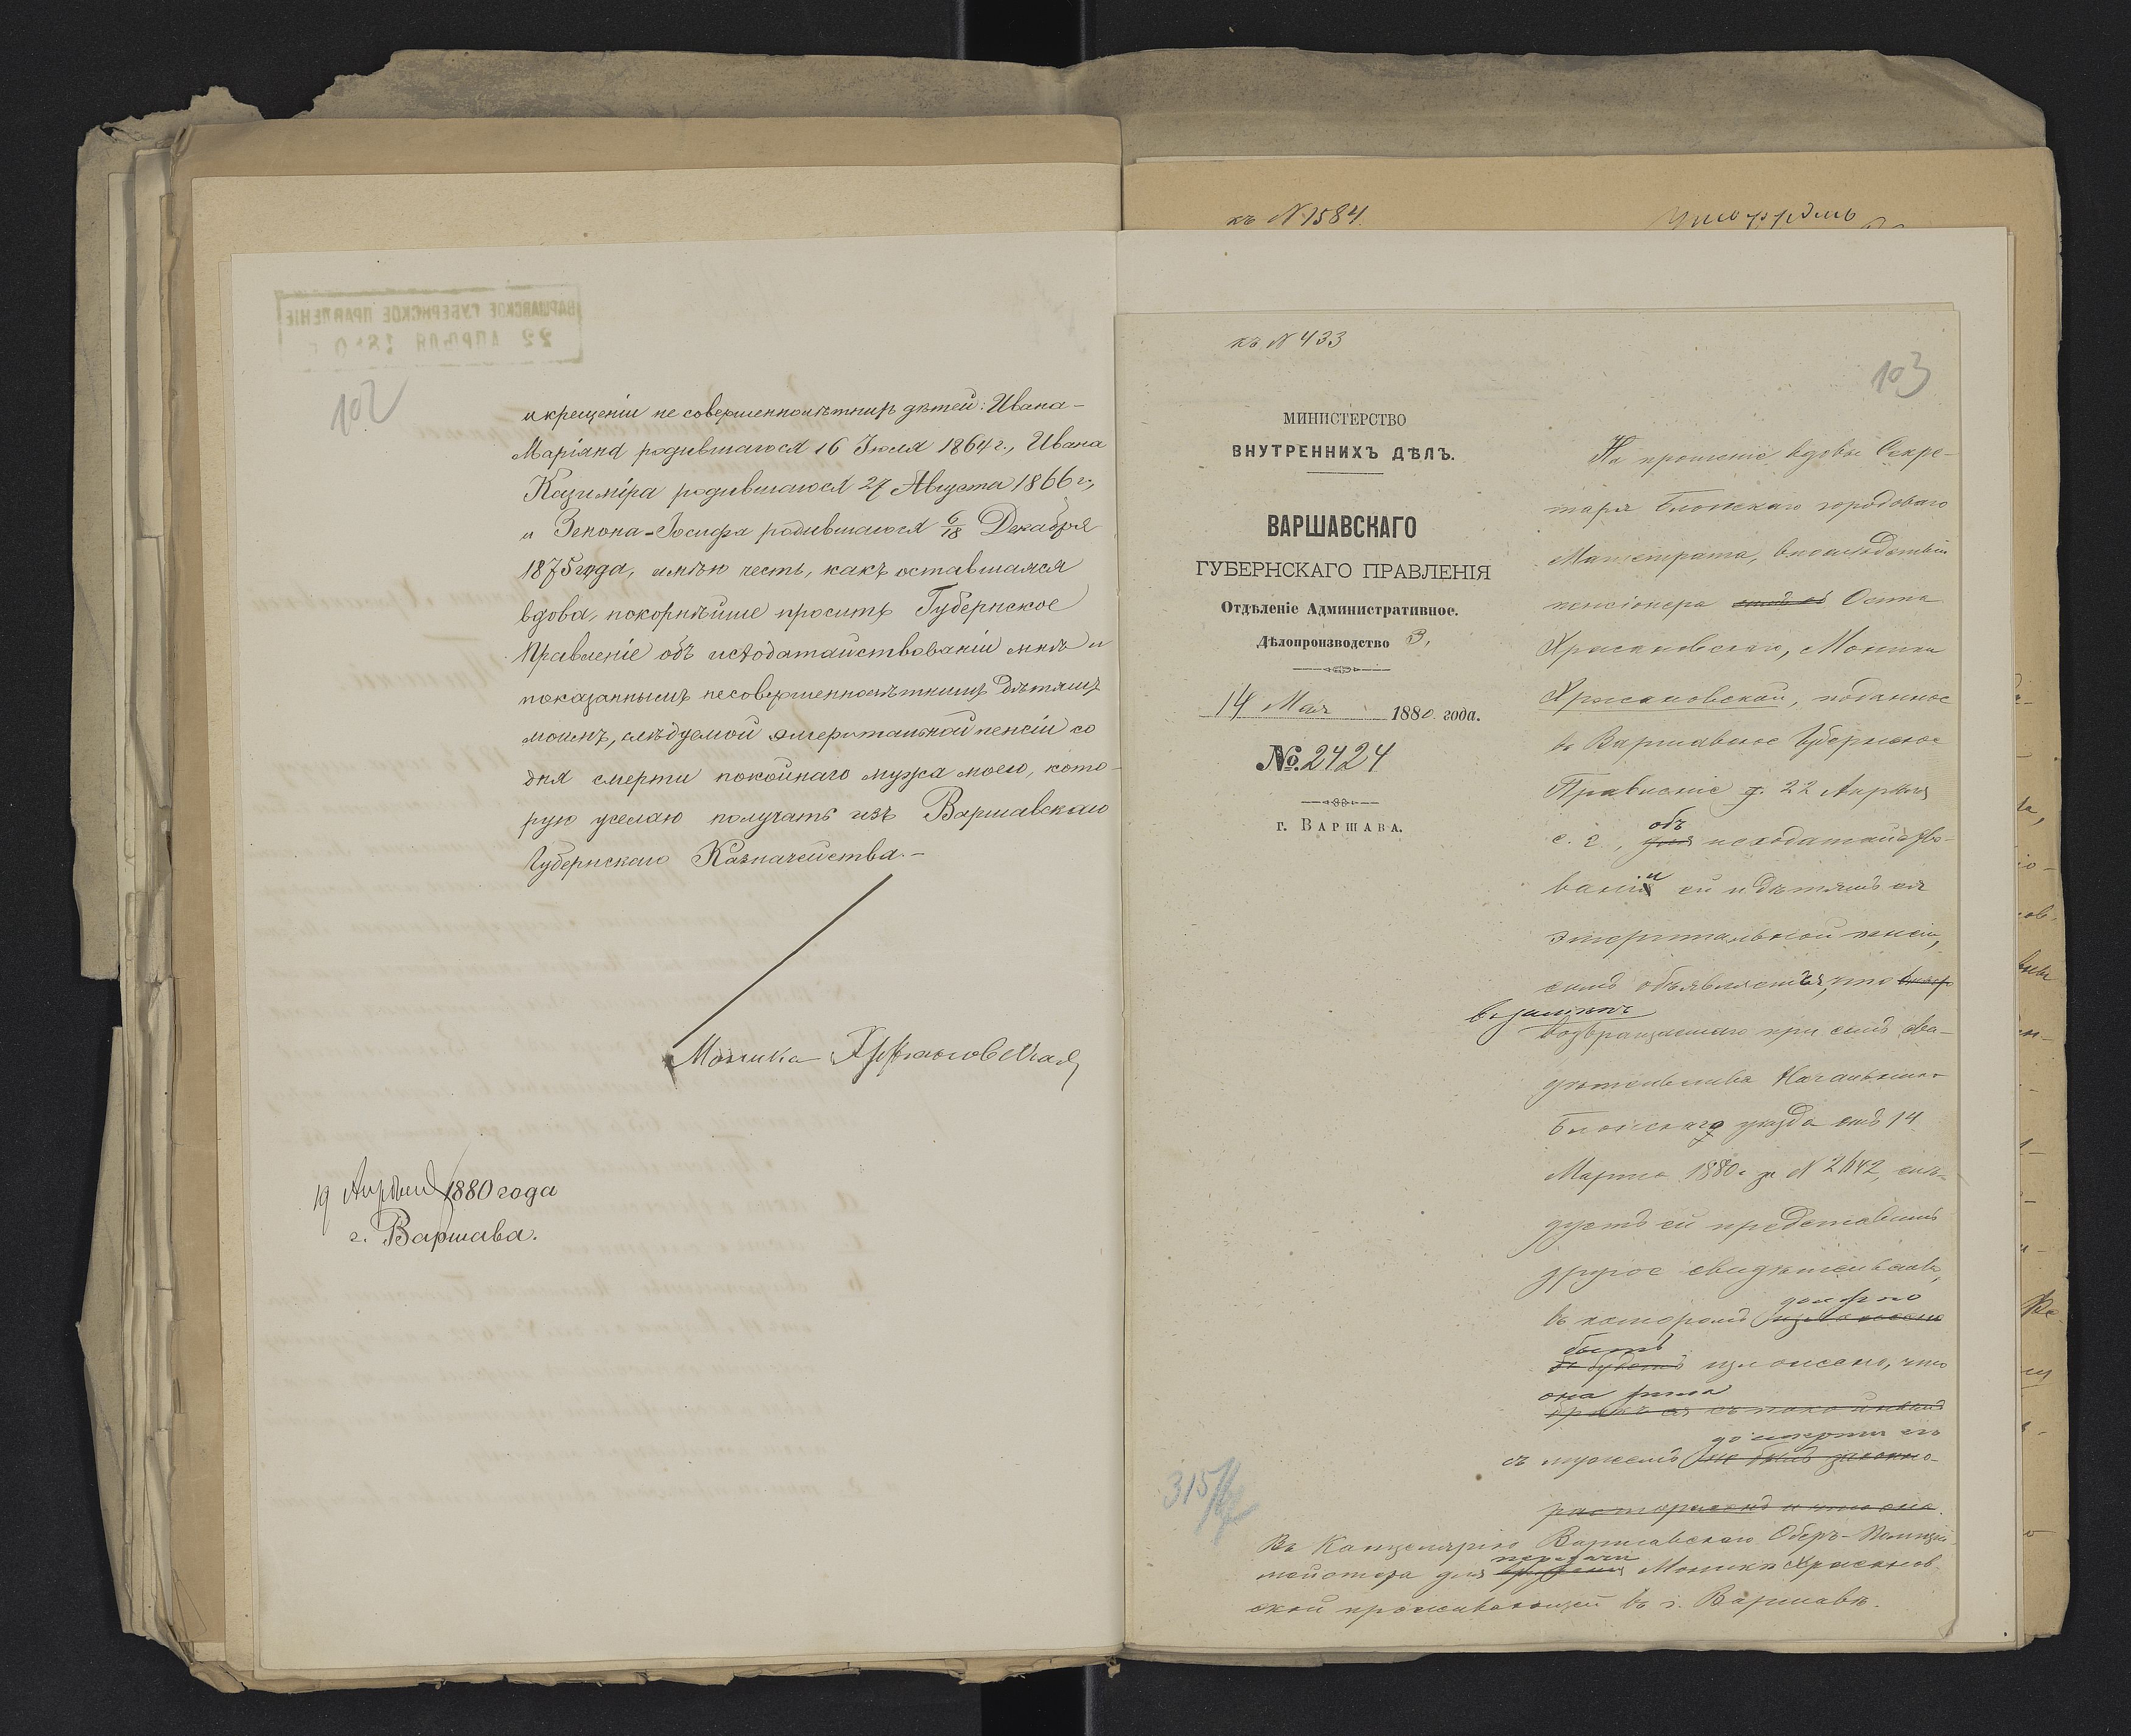 102
и крещеніи не совершеннолѣтнихъ дѣтей: Ивана-
Маріяна родившагося 16 Іюля 1864 г., Ивана
Казиміра родившагося 27 Августа 1866 г.,
и Зенона-Іосифа родившагося 6/18 Декабря
1875 года, имѣю честь, какъ оставшаяся
вдова, покорнѣйше просить Губернское
Правленіе объ исходатайствованіи мнѣ и
показаннымъ несовершеннолѣтнимъ дѣтямъ
моимъ, слѣдуемой эмеритальной пенсіи со
дня смерти покойнаго мужа моего, кото-
рую желаю получать изъ Варшавскаго
Губернскаго Казначейства.-
Моника Хржановская
19 Апрѣля 1880 года
г. Варшава.
ВАРШАВСКОЕ ГУБЕРНСКОЕ ПРАВЛЕНІЕ
22 АПРѢЛЯ 1880 Г
къ N 1584
къ N 433
103
МИНИСТЕРСТВО
ВНУТРЕННИХЪ ДѢЛЪ.
ВАРШАВСКАГО
ГУБЕРНСКАГО ПРАВЛЕНІЯ
Отдѣленіе Административное.
Дѣлопроизводство 3,
14 Мая 1880 года.
№ 2424
г. ВАРШАВА.
На прошеніе вдовы Секре-
таря Блонскаго городоваго
Магистрата, впослѣдствіи
пенсіонера Осипа
Хржановскаго, Моники
Хржановской, поданное
въ Варшавское Губернское
Правленіе 22 Апрѣля
с. г., объ исходатайство-
ваніи ей и дѣтямъ ея
эмеритальной пенсіи,
симъ объявляется, что
взамѣнъ
возвращаемаго при семъ сви-
дѣтельства Начальника
Блонскаго уѣзда отъ 14
Марта 1880 г. за N 2642, слѣ-
дуетъ ей представить
другое свидѣтельство,
въ которомъ должно
быть изложено, что
она жила
съ мужемъ до смерти его
315
Въ Канцелярію Варшавскаго Оберъ-Полицій-
мейстера для передачи Моникѣ Хржанов-
ской проживающей въ г. Варшавѣ.